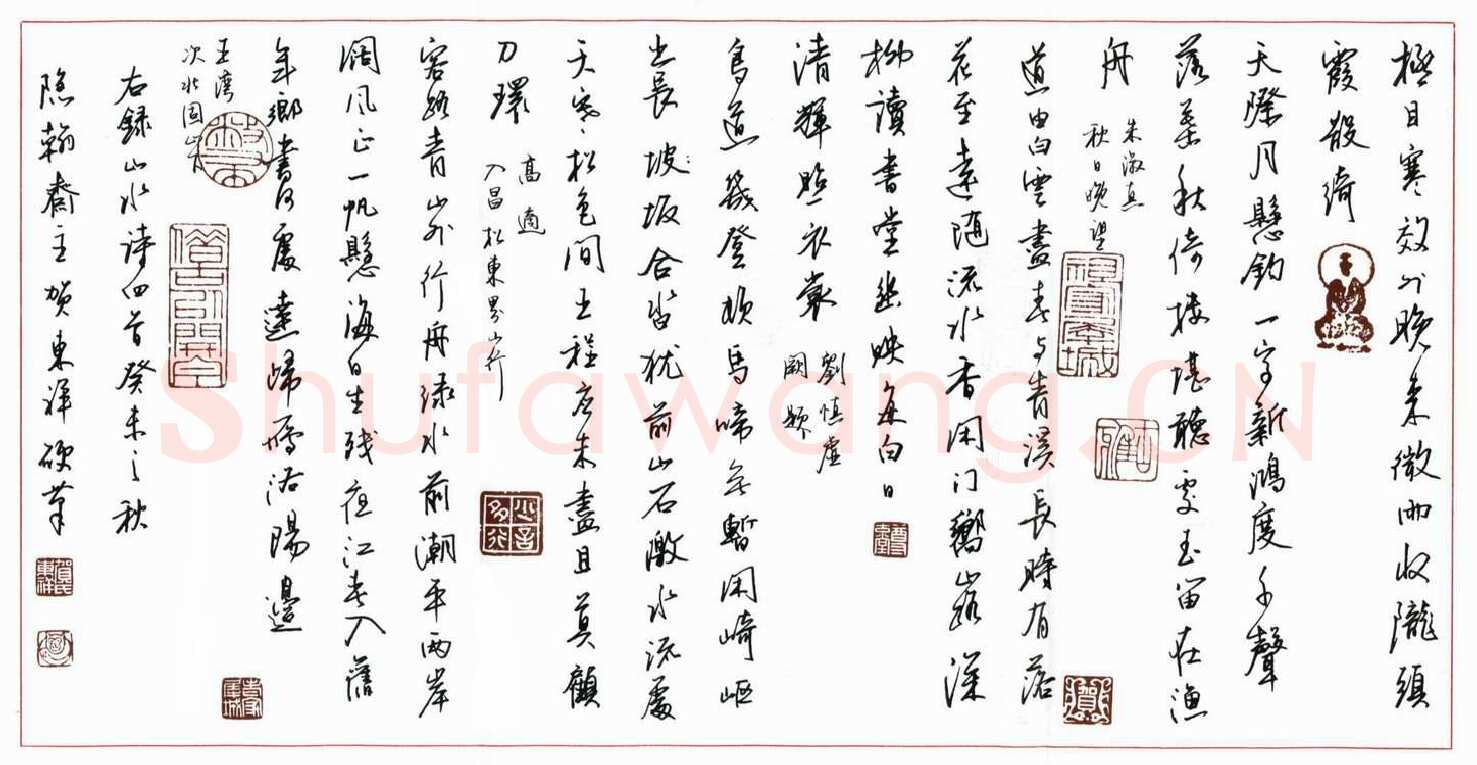 極目寒郊外晚來微雨收隴頭
霞散綺
天際月懸鈎一字新鴻度千聲
落葉秋倚樓堪聽處玉笛在漁
舟
朱淑真
秋日晚望
道由白雲盡春與青溪長時有落
花至遠隨流水香閑門嚮山路深
柳讀書堂幽映每白日
清輝照衣裳
劉慎虛
闕題
鳥道幾登頓馬啼無暫閑崎嶇
出長坡坂合沓犹前山石激水流處
天寒松色間王程应未盡且莫顧
刀環
高適
入昌松東界山行
客路青山外行舟绿水前潮平兩岸
闊风正一帆懸海日生残夜江春入舊
年鄉書何處達歸雁洛陽邊
王灣
次北固山下
右録山水诗四首癸未之秋
隐翰齋主賀東祥硬筆
少言
多行
賀氏
東祥
Shufawang.CN